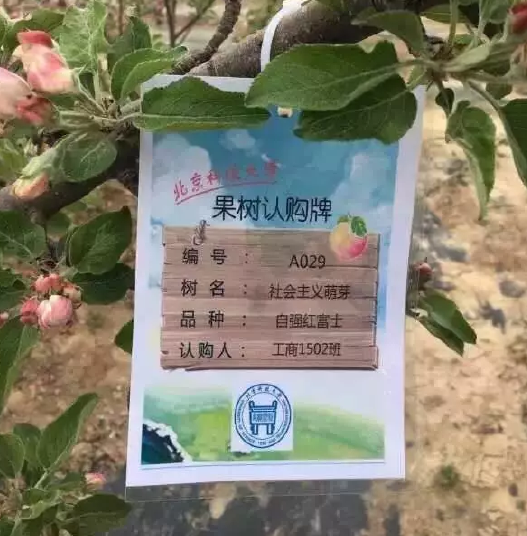 北京科技大学
果树认购牌
编 号 ： A029
树 名 ： 社会主义萌芽
品 种 ： 自强红富士
认购人： 工商1502班